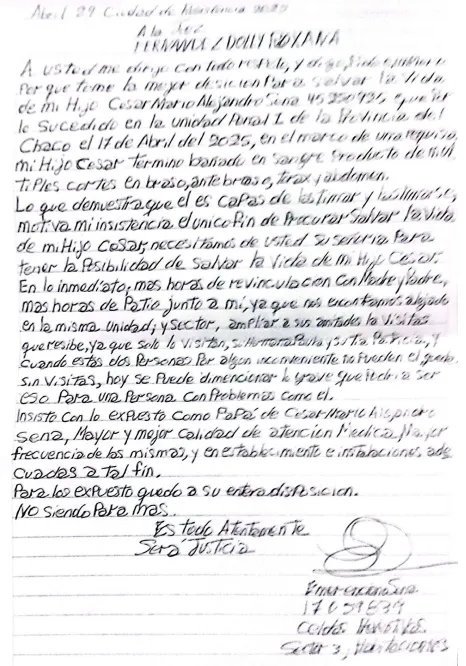 Abril 29 Ciudad de Resistencia 2025
A la Juez
FERNANDEZ DOLLY ROXANA
A usted me dirijo con todo respeto, y
Porque tome la mejor desicion Para salvar la Vida
de mi Hijo Cesar Mario Alejandro Sena
lo Sucedido en la unidad Penal 1 de la Provincia del
Chaco el 17 de Abril del 2025, en el marco de una requisa,
mi Hijo Cesar termino bañado en sangre Producto de mul
tiples cortes en braso, ante braso, torax y abdomen.
Lo que demuestra que el es capas de lastimar y lastimarse,
motiva mi insistencia el unico fin de Procurar salvar la vida
de mi Hijo Cesar, necesitamos de usted su señoria Para
tener la Posibilidad de Salvar la Vida de mi Hijo Cesar.
En lo inmediato, mas horas de revinculacion con Madre y Padre,
mas horas de Patio junto a mi, ya que nos encontramos alojado
en la misma Unidad, y Sector, ampliar a sus amistades la Visitas
que resibe, ya que solo lo visitan, su Hermana y su tia Patricia, y
cuando estas dos Personas Por algun inconveniente no Pueden el queda
sin visitas, hoy se Puede dimencionar lo grave que Podria ser
eso Para una Persona con Problemas como el.
Insisto con lo expuesto como Papás de Cesar Mario Alejandro
Sena, Mayor y mejor calidad de atencion Medica, Mayor
frecuencia de las mismas, y en establecimiento e instalaciones ade
cuadas a tal fin.
Para los expuesto quedo a su entera disposicion.
No siendo Para mas.
Es todo Atentamente
Será Justicia
Emerenciano Sena
Sector 3,